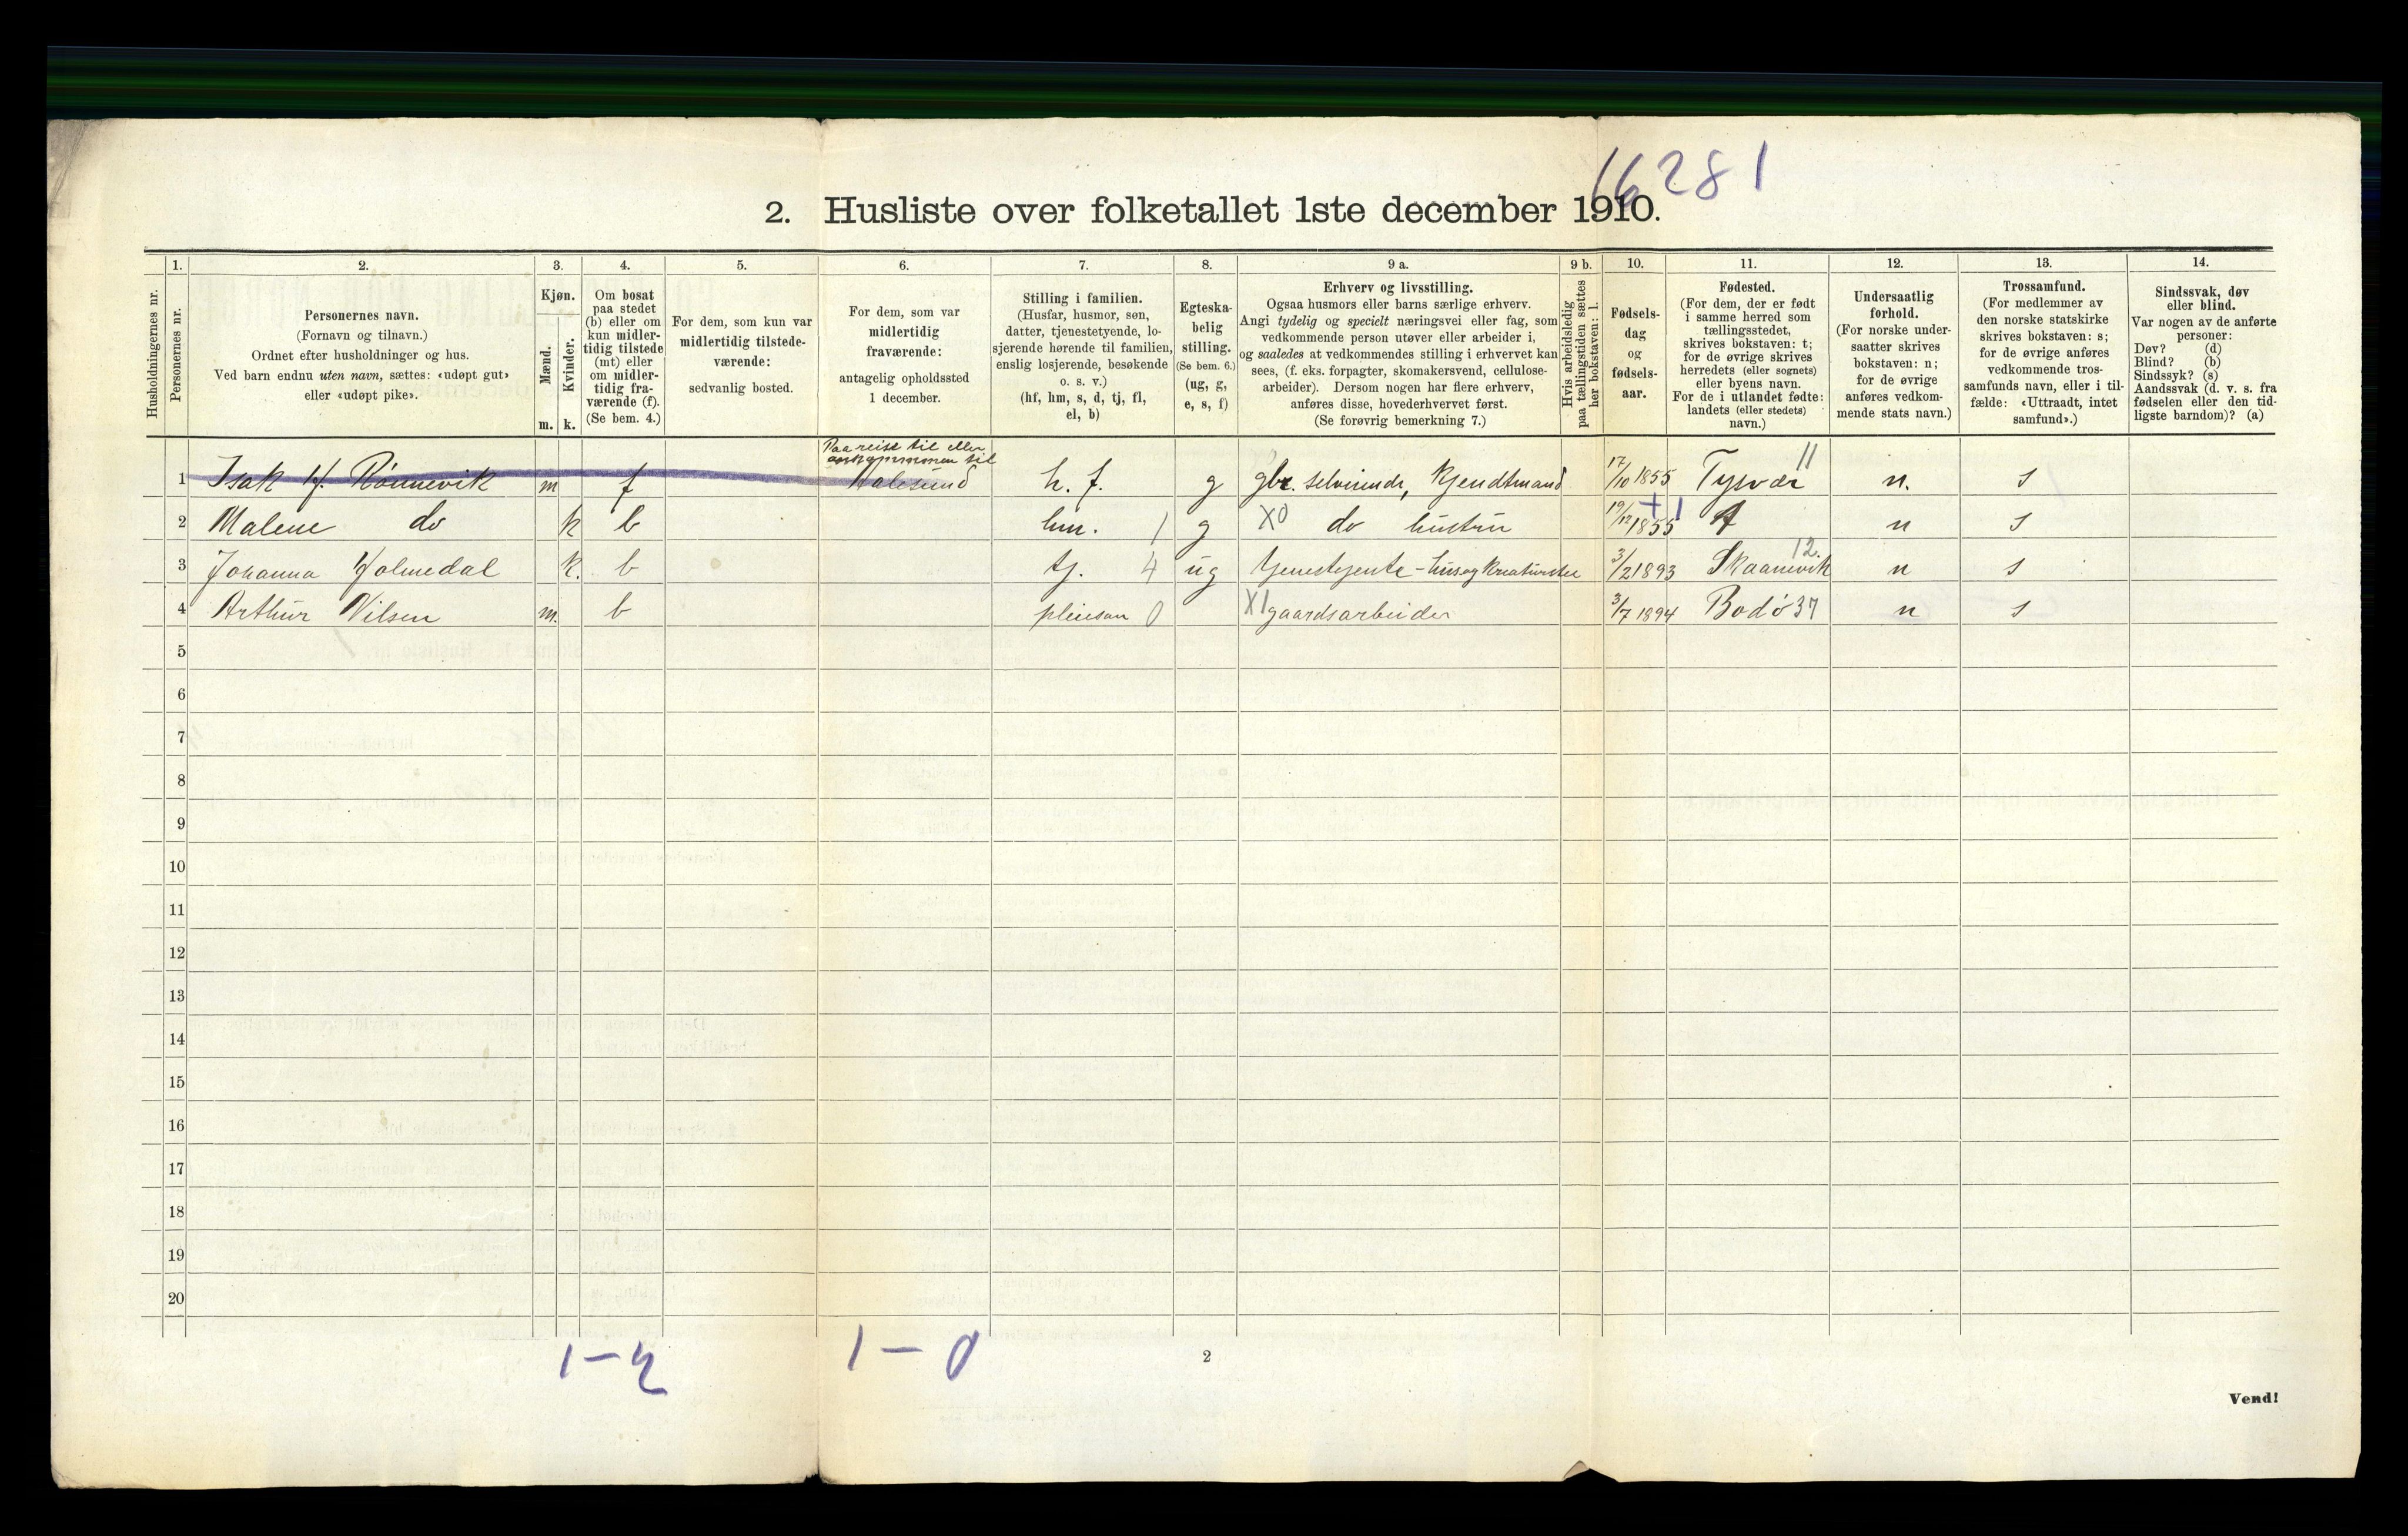 16281
2. Husliste over folketallet 1ste december 1910.
Husholdningernes nr.
1.
Personernes nr.
2.
Personernes navn.
(Fornavn og tilnavn.)
Ordnet efter husholdninger og hus.
Ved barn endnu uten navn, sættes: «udøpt gut»
eller «udøpt pike».
3.
Kjøn.
Mænd.
Kvinder.
m. k.
4.
Om bosat
paa stedet
(b) eller om
kun midler-
tidig tilstede
(mt) eller
om midler-
tidig fra-
værende (f).
(Se bem. 4.)
5.
For dem, som kun var
midlertidig tilstede-
værende:
sedvanlig bosted.
6.
For dem, som var
midlertidig
fraværende:
antagelig opholdssted
1 december.
7.
Stilling i familien.
(Husfar, husmor, søn,
datter, tjenestetyende, lo-
sjerende hørende til familien,
enslig losjerende, besøkende
o. s. v.)
(hf, hm, s, d, tj, fl,
el, b)
8.
Egteska-
belig
stilling.
(Se bem. 6.)
(ug, g,
e, s, f)
9 a.
Erhverv og livsstilling.
Ogsaa husmors eller barns særlige erhverv.
Angi tydelig og specielt næringsvei eller fag, som
vedkommende person utøver eller arbeider i,
og saaledes at vedkommendes stilling i erhvervet kan
sees, (f. eks. forpagter, skomakersvend, cellulose-
arbeider). Dersom nogen har flere erhverv,
anføres disse, hovederhvervet først.
(Se forøvrig bemerkning 7.)
9 b.
Hvis arbeidsledig
paa tællingstiden sættes
her bokstaven: l.
10.
Fødsels-
dag
og
fødsels-
aar.
11.
Fødested.
(For dem, der er født
i samme herred som
tællingsstedet,
skrives bokstaven: t;
for de øvrige skrives
herredets (eller sognets)
eller byens navn.
For de i utlandet fødte:
landets (eller stedets)
navn.)
12.
Undersaatlig
forhold.
(For norske under-
saatter skrives
bokstaven: n;
for de øvrige
anføres vedkom-
mende stats navn.)
13.
Trossamfund.
(For medlemmer av
den norske statskirke
skrives bokstaven: s;
for de øvrige anføres
vedkommende tros-
samfunds navn, eller i til-
fælde: «Uttraadt, intet
samfund».)
14.
Sindssvak, døv
eller blind.
Var nogen av de anførte
personer:
Døv? (d)
Blind? (b)
Sindssyk? (s)
Aandssvak (d. v. s. fra
fødselen eller den tid-
ligste barndom)? (a)
Paa reise til eller
til
1 Isak H. Rønnevik m f Aalesund h. f. g gbr. selveiende, Kjendtmand 17/10 1855 Tysvær 11 n. s
2 Malene do k b hm. 1 g X0 do hustru 19/12 1855 + 1 n s
3 Johanna Holmedal k. b tj. 4 ug tjenestejente - hus og kreaturstel 3/2 1893 Skaanevik 12. n s
4 Arthur Nilsen m. b pleiesøn 0 X1 gaardsarbeider 3/7 1894 Bodø 37 n s
5
6
7
8
9
10
11
12
13
14
15
16
17
18
19
20
1 – 2 1 – 0
2
Vend!